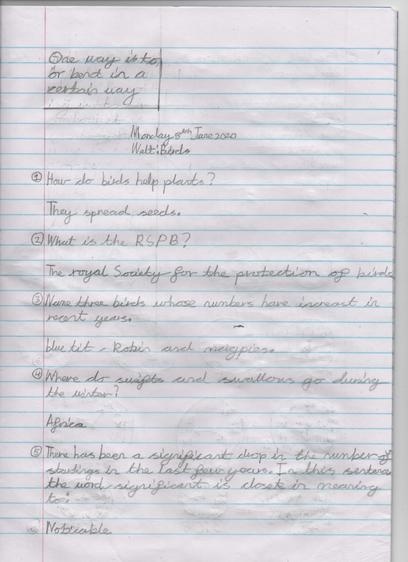 One way is to
or bend in a
certain way
Monday 8th June 2020
Walt: Birds
① How do birds help plants?
They spread seeds.
② What is the RSPB?
The royal Society for the protection of birds
③ Name three birds whose numbers have increast in
recent years.
blue tit - Robin and magpies.
④ Where do swifts and swallows go during
the winter?
Africa
⑤ There has been a significant drop in the number of
starlings in the last few years. In this sentence
the word significant is closest in meaning
to:
Noticable